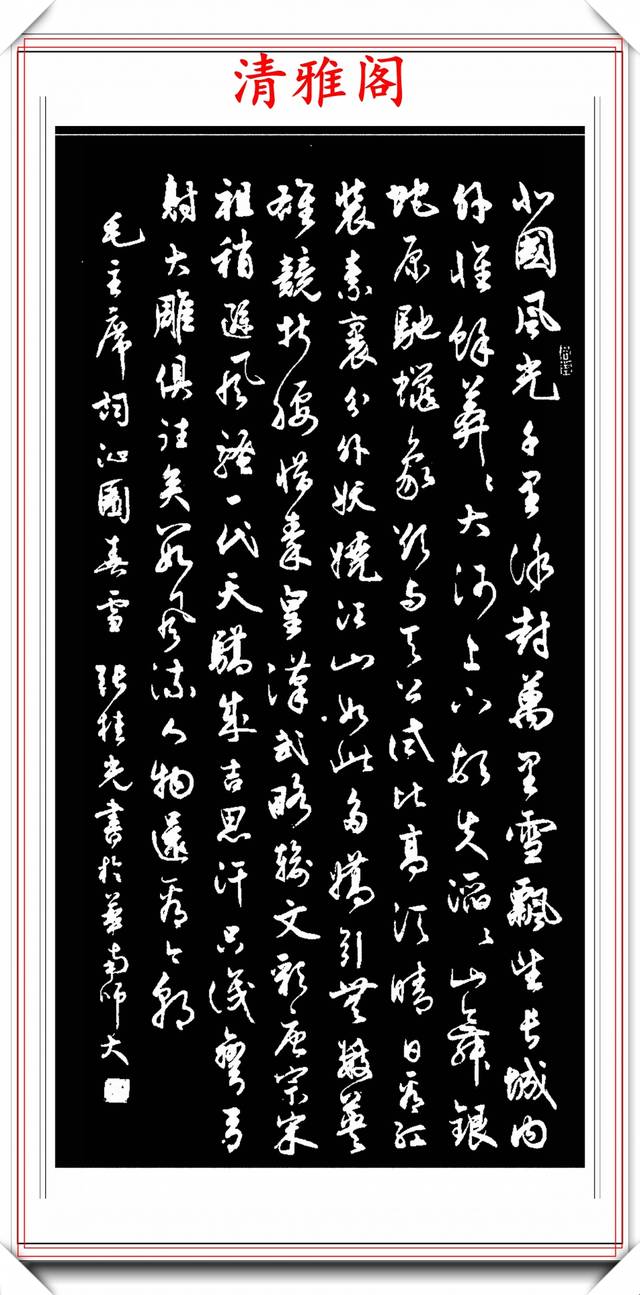 清雅阁
北國風光千里冰封萬里雪飄望長城内
外惟餘莽〻大河上下頓失滔〻山舞銀
蛇原馳蠟象欲與天公試比高須晴日看紅
裝素裹分外妖嬈江山如此多嬌引無數英
雄競折腰惜秦皇漢武略輸文彩唐宗宋
祖稍遜風騷一代天驕成吉思汗只識彎弓
射大雕俱往矣數風流人物還看今朝
毛主席詞沁園春雪 張桂光書於華南師大